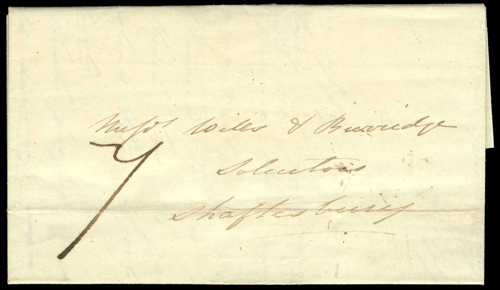 Messrs Wills & Burridge
7
Solicitors
Shaftesbury